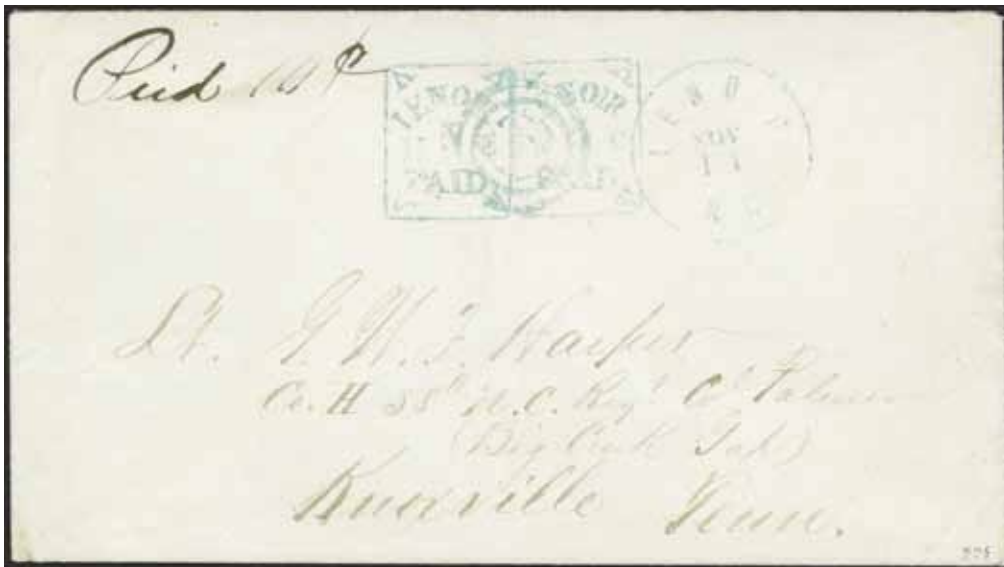 Paid 10¢
LENOIR LENOIR
PAID PAID
LENOIR
NOV
11
Lt. G. W. F. Harper
Co. H 58th N.C. Regt Col Palmer
(Big Creek Gap)
Knoxville Tenn.